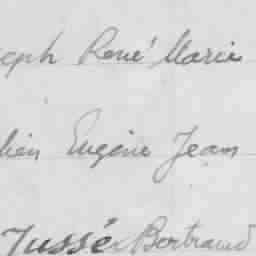 eph René Marie
lien Eugène Jean
Jussé Bertrand